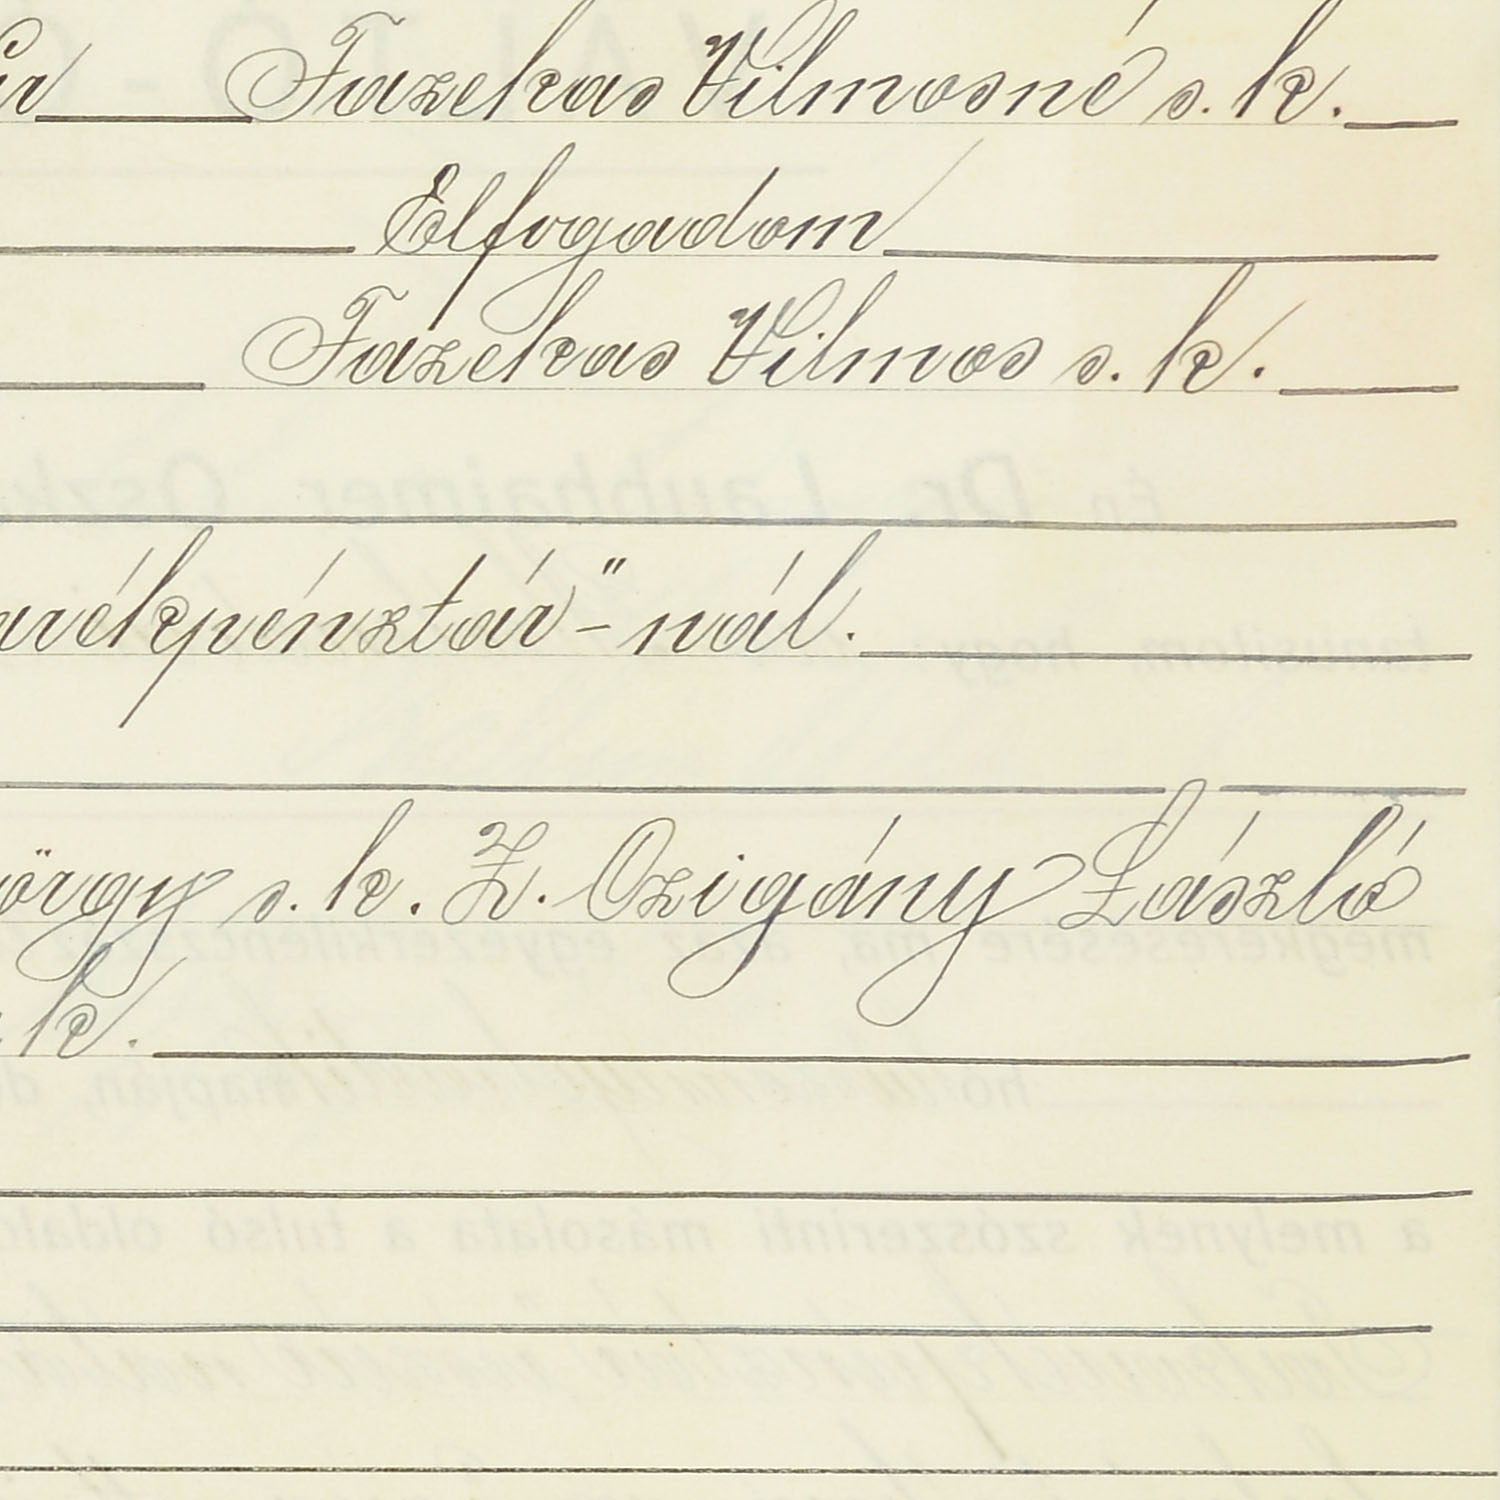 Fazekas Vilmosné s. k.
Elfogadom
Fazekas Vilmos s. k.
arékpénztár"- nál.
örgy s. k. Z. Czigány László
k.